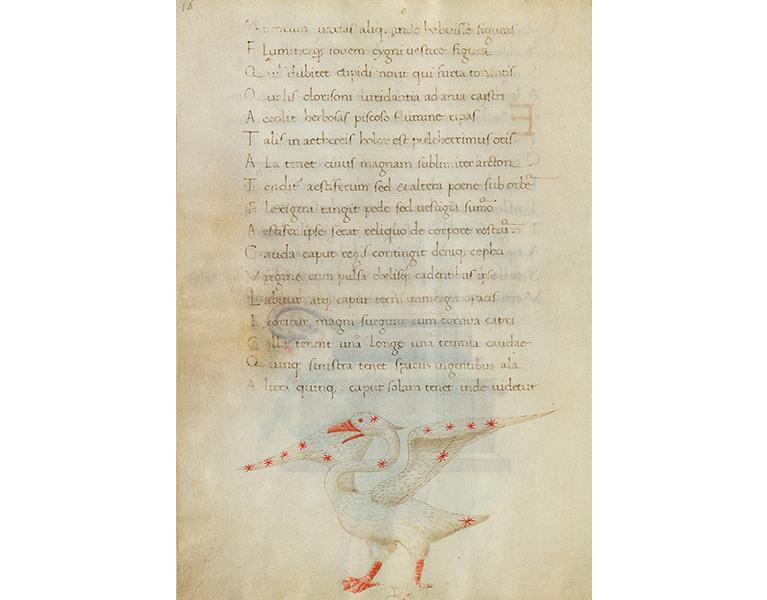 16
aliq,
F Lumineaq; iouem cygni uestire figura
Q dubitet cupidi norit qui furta tonantis
Q ualis olorisoni uiridantia ad arua caistri
A ccolit herbosas piscoso flumine ripas
T alis in aethereis holor est pulcherrimus oris.
A La tenet cuius magnam sublimiter arcton
T endit aestiferum sed & altera poene sub orbe
F lexigeni tangit pede sed uestigia
A estifer ipse secat reliquo de corpore
C auda caput regis contingit deniq, cephei
V irgine cum pulsa chelisq; cadentibus ipse
L abitur atq; caput terris opacis
E xoritur magni surgunt cum cornua capri
S tella tenent unã Longe unã termina caudae
Q uinq; sinistra tenet spaciis ingentibus ala
A ltera quinq, caput solam tenet inde uidetur